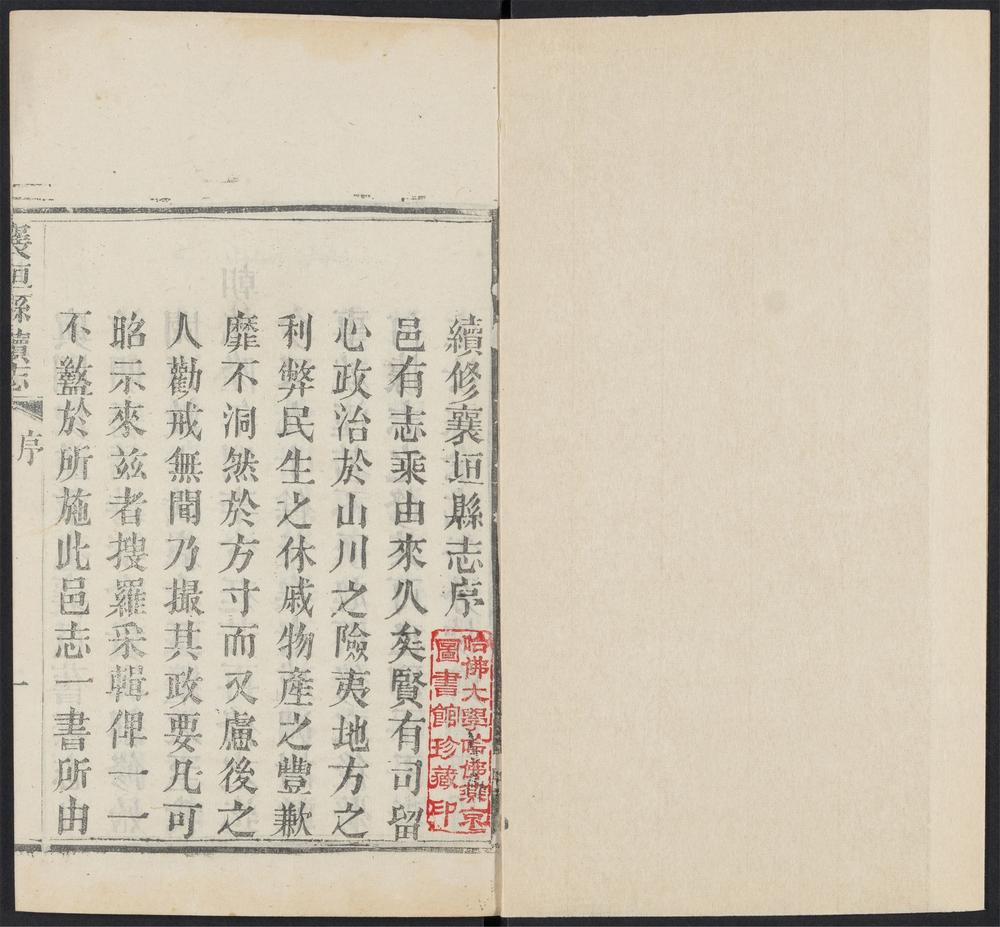 續修襄垣縣志序
邑有志乘由來久矣賢有司留
心政治於山川之險夷地方之
利弊民生之休戚物產之豐歉
靡不洞然於方寸而又慮後之
人勸戒無聞乃撮其政要凡可
昭示來茲者搜羅采輯俾一一
不盭於所施此邑志一書所由
襄垣縣續志
序
一
哈佛大學哈佛燕京
圖書館珍藏印